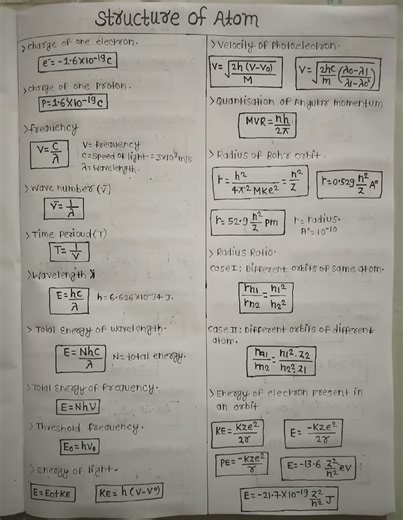 Structure of Atom
> charge of one electron.
e⁻= -1.6X10⁻¹⁹C
> charge of one Proton.
P=1.6X10⁻¹⁹C
> frequency
V= C/λ
V= frequency
C= Speed of light = 3X10⁸m/s
λ= wavelength.
> Wave number (v̄)
v̄= 1/λ
> Time Perioud (T)
T= 1/V
> Wavelength λ
E= hc/λ
h= 6.626X10⁻³⁴ J.
> Total Energy of wavelength.
E= Nhc/λ
N= total energy.
> Total Energy of Frequency.
E=NhV
> Threshold frequency.
E₀=hV₀
> Energy of light.
E= E₀+KE
KE= h(V-V⁰)
> Velocity of Photoelectron.
V= √2h(V-V₀)/M
V= √2hc/m (λ0-λ1/λ1-λ0)
> Quantisation of Angular momentum
MVR= nh/2π
> Radius of Bohr orbit.
r= h²/4π²MKe² = n²/Z
r=0.529 n²/Z A°
r= 52.9 n²/Z pm
r= radius.
A°=10⁻¹⁰
> Radius Ratio.
Case I: Different orbits of Same atom.
rn1/rn2 = n1²/n2²
Case II: Different orbits of different
atom.
rn1/rn2 = n1².Z2/n2².Z1
> Energy of electron present in
an orbit
KE= KZe²/2r
E= -KZe²/2r
PE= -KZe²/r
E= -13.6 Z²/n² eV
E= -21.7X10⁻¹⁹ Z²/n² J